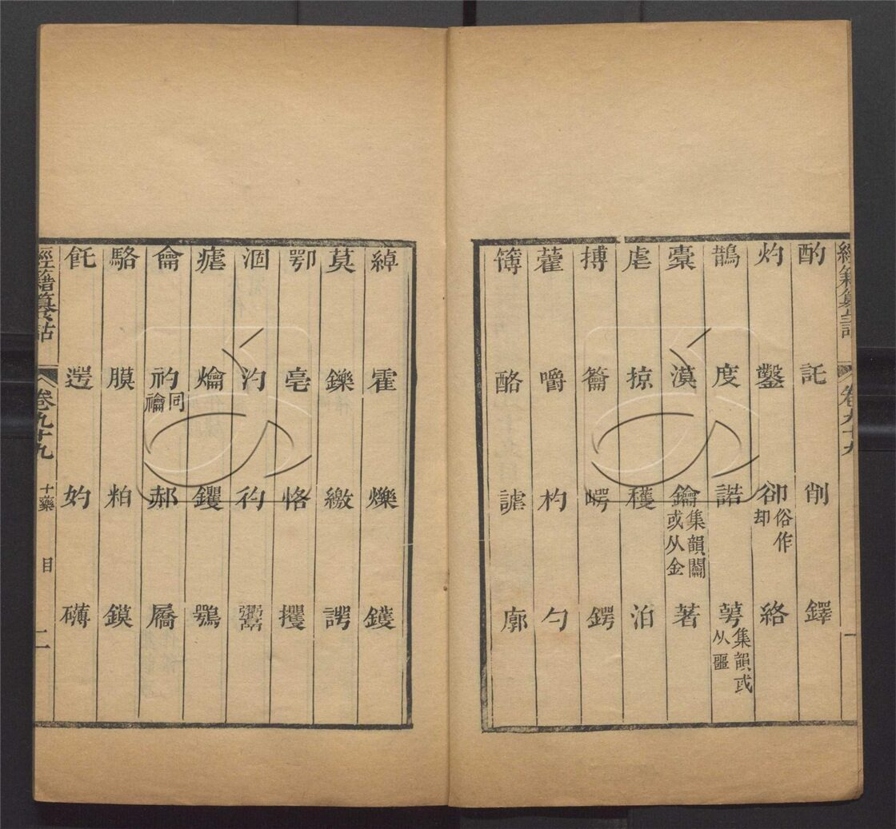 經籍籑詁 卷九十九 一
酌 託 削 鐸
灼 鑿 卻俗作却 絡
鵲 度 諾 萼集韻或从噩
橐 漠 鑰集韻關或从金 著
虐 掠 穫 泊
搏 籥 愕 鍔
藿 嚼 杓 勺
簿 酪 謔 廓
綽 霍 爍 鑊
莫 鑠 繳 諤
鄂 亳 恪 攫
涸 汋 礿
瘧 爚 钁 鶚
龠 礿同禴 郝 屩
駱 膜 粕 鏌
飥 遻 妁 礴
經籍籑詁 卷九十九 十藥 目 二